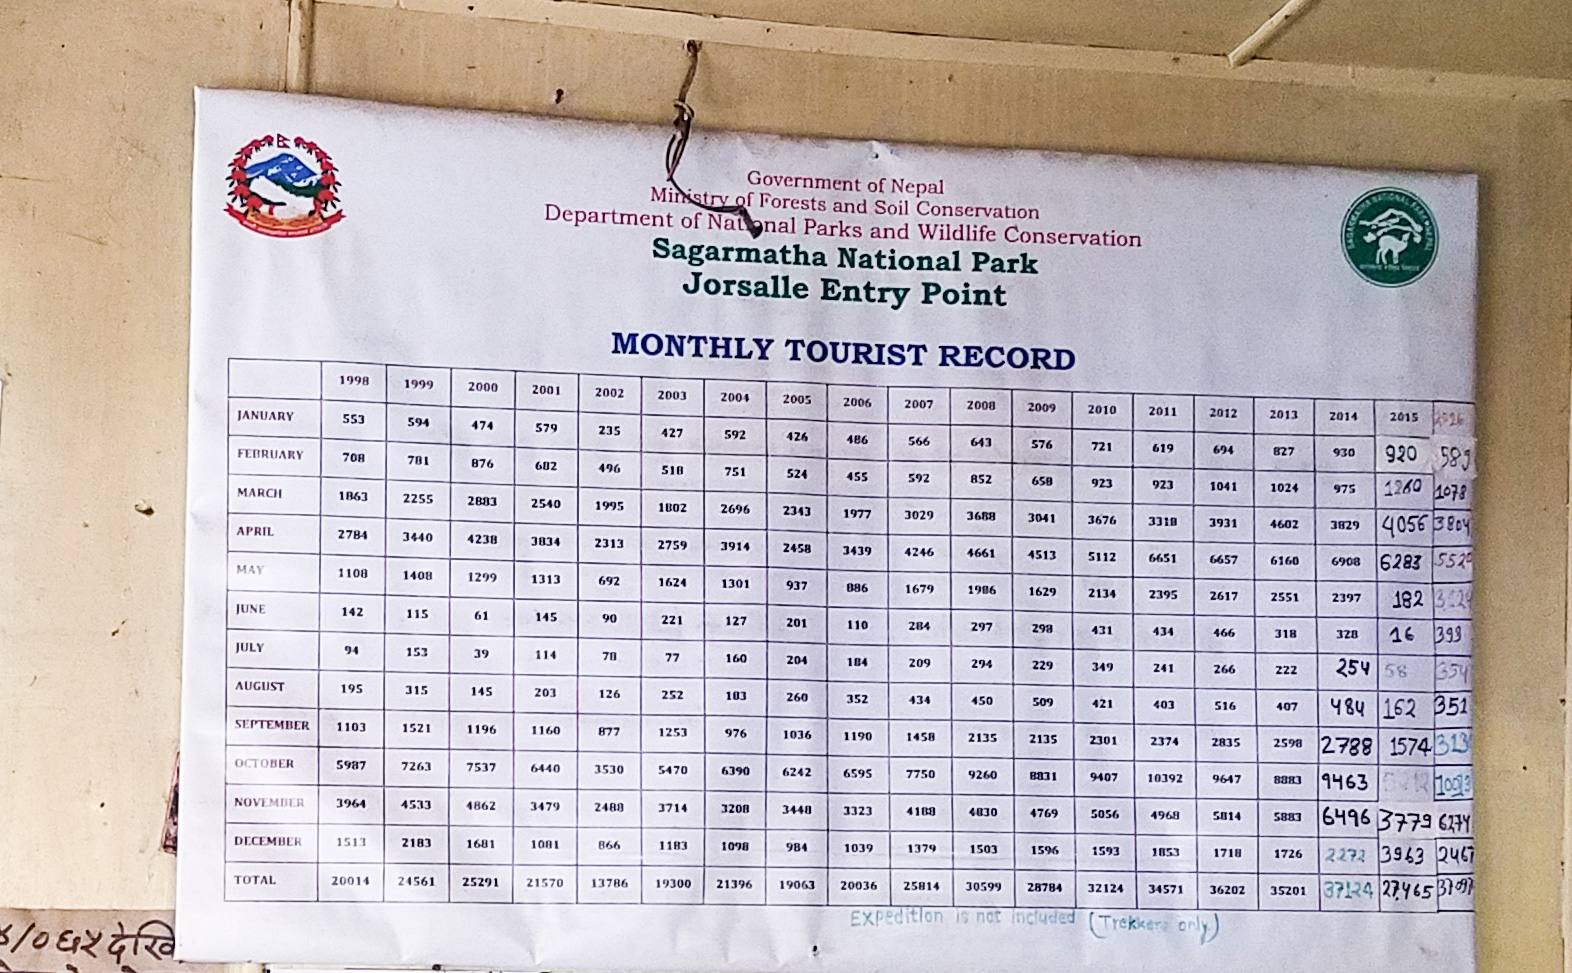 Government of Nepal
Ministry of Forests and Soil Conservation
Department of National Parks and Wildlife Conservation
Sagarmatha National Park
Jorsalle Entry Point
MONTHLY TOURIST RECORD
1998 1999 2000 2001 2002 2003 2004 2005 2006 2007 2008 2009 2010 2011 2012 2013 2014 2015
JANUARY 553 594 474 579 235 427 592 426 486 566 643 576 721 619 694 827 930 920 589
FEBRUARY 708 781 876 682 496 518 751 524 455 592 852 658 923 923 1041 1024 975 1260 1078
MARCH 1863 2255 2883 2540 1995 1802 2696 2343 1977 3029 3688 3041 3676 3318 3931 4602 3829 4056 3804
APRIL 2784 3440 4238 3834 2313 2759 3914 2458 3439 4246 4661 4513 5112 6651 6657 6160 6908 6283
MAY 1108 1408 1299 1313 692 1624 1301 937 886 1679 1986 1629 2134 2395 2617 2551 2397 182
JUNE 142 115 61 145 90 221 127 201 110 284 297 298 431 434 466 318 328 16 399
JULY 94 153 39 114 78 77 160 204 184 209 294 229 349 241 266 222 254 58 354
AUGUST 195 315 145 203 126 252 183 260 352 434 450 509 421 403 516 407 484 162 351
SEPTEMBER 1103 1521 1196 1160 877 1253 976 1036 1190 1458 2135 2135 2301 2374 2835 2598 2788 1574
OCTOBER 5987 7263 7537 6440 3530 5470 6390 6242 6595 7750 9260 8831 9407 10392 9647 8883 9463
NOVEMBER 3964 4533 4862 3479 2488 3714 3208 3448 3323 4188 4830 4769 5056 4968 5814 5883 6496 3779 6274
DECEMBER 1513 2183 1681 1081 866 1183 1098 984 1039 1379 1503 1596 1593 1853 1718 1726 2272 3963 2467
TOTAL 20014 24561 25291 21570 13786 19300 21396 19063 20036 25814 30599 28784 32124 34571 36202 35201 37124 27465
Expedition is not included (Trekkers only)
देखि